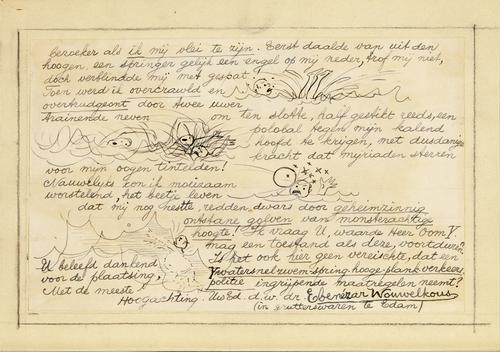 bezoeker als ik mij vlei te zijn. Eerst daalde van uit den
hoogen, een springer gelijk een engel op mij neder, trof mij niet,
doch verblindde mij met gespat!
Toen werd ik overcrawld en
overhudgeont door twee uwer
trainende neven
om ten slotte, half gestikt reeds, een
polobal tegen mijn kalend
hoofd te krijgen, met dusdanige
kracht dat mijriaden sterren
voor mijn oogen tintelden!
Nauwelijks kon ik moeizaam
worstelend, het beetje leven
dat mij nog restte, redden, dwars door geheimzinnig
ontstane golven van monsterachtige
hoogte! Ik vraag U, waarde Heer Oom
mag een toestand als deze, voortduren?
Is het ook hier geen vereischte, dat een
watersnelzwem-spring-hooge-plank verkeers
politie ingrijpende maatregelen neemt?
U beleefd dankend
voor de plaatsing,
Met de meeste
Hoogachting. UwEd. d.w. dr. Ebenezar Wouvelkous
(in grutterswaren te Edam)